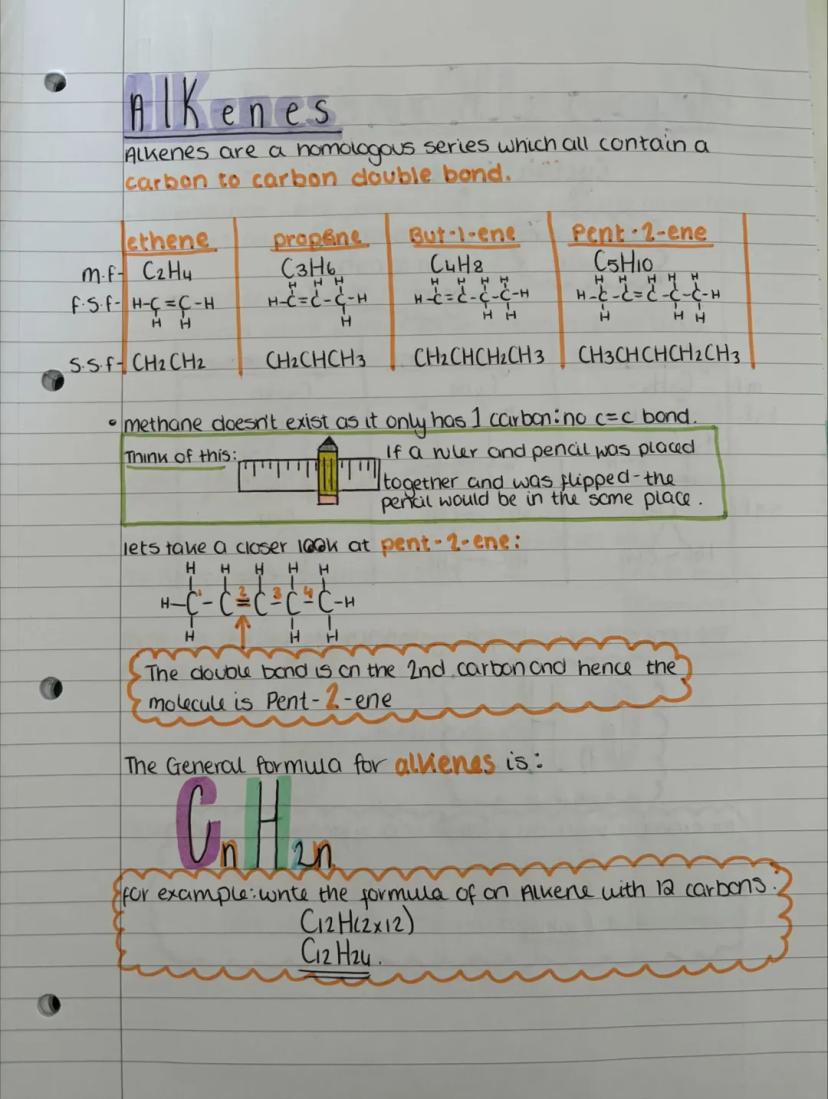 Alkenes
Alkenes are a homologous series which all contain a
carbon to carbon double bond.
ethene propene But-1-ene Pent-2-ene
m.f- C2H4 C3H6 C4H8 C5H10
H H H H H H H H H H H H
f.s.f- H-C=C-H H-C=C-C-H H-C=C-C-C-H H-C-C=C-C-C-H
H H H H H H H H
S.S.f- CH2CH2 CH2CHCH3 CH2CHCH2CH3 CH3CHCHCH2CH3
• methane doesn't exist as it only has 1 carbon: no c=c bond.
Think of this: If a ruler and pencil was placed
together and was flipped - the
pencil would be in the same place.
lets take a closer look at pent-2-ene:
H H H H H
1 2 3 4
H-C-C=C-C-C-H
H H H
The double bond is on the 2nd carbon and hence the
molecule is Pent-2-ene
The General formula for alkenes is:
CnH2n
for example: write the formula of an Alkene with 12 carbons.
C12H(2x12)
C12H24.